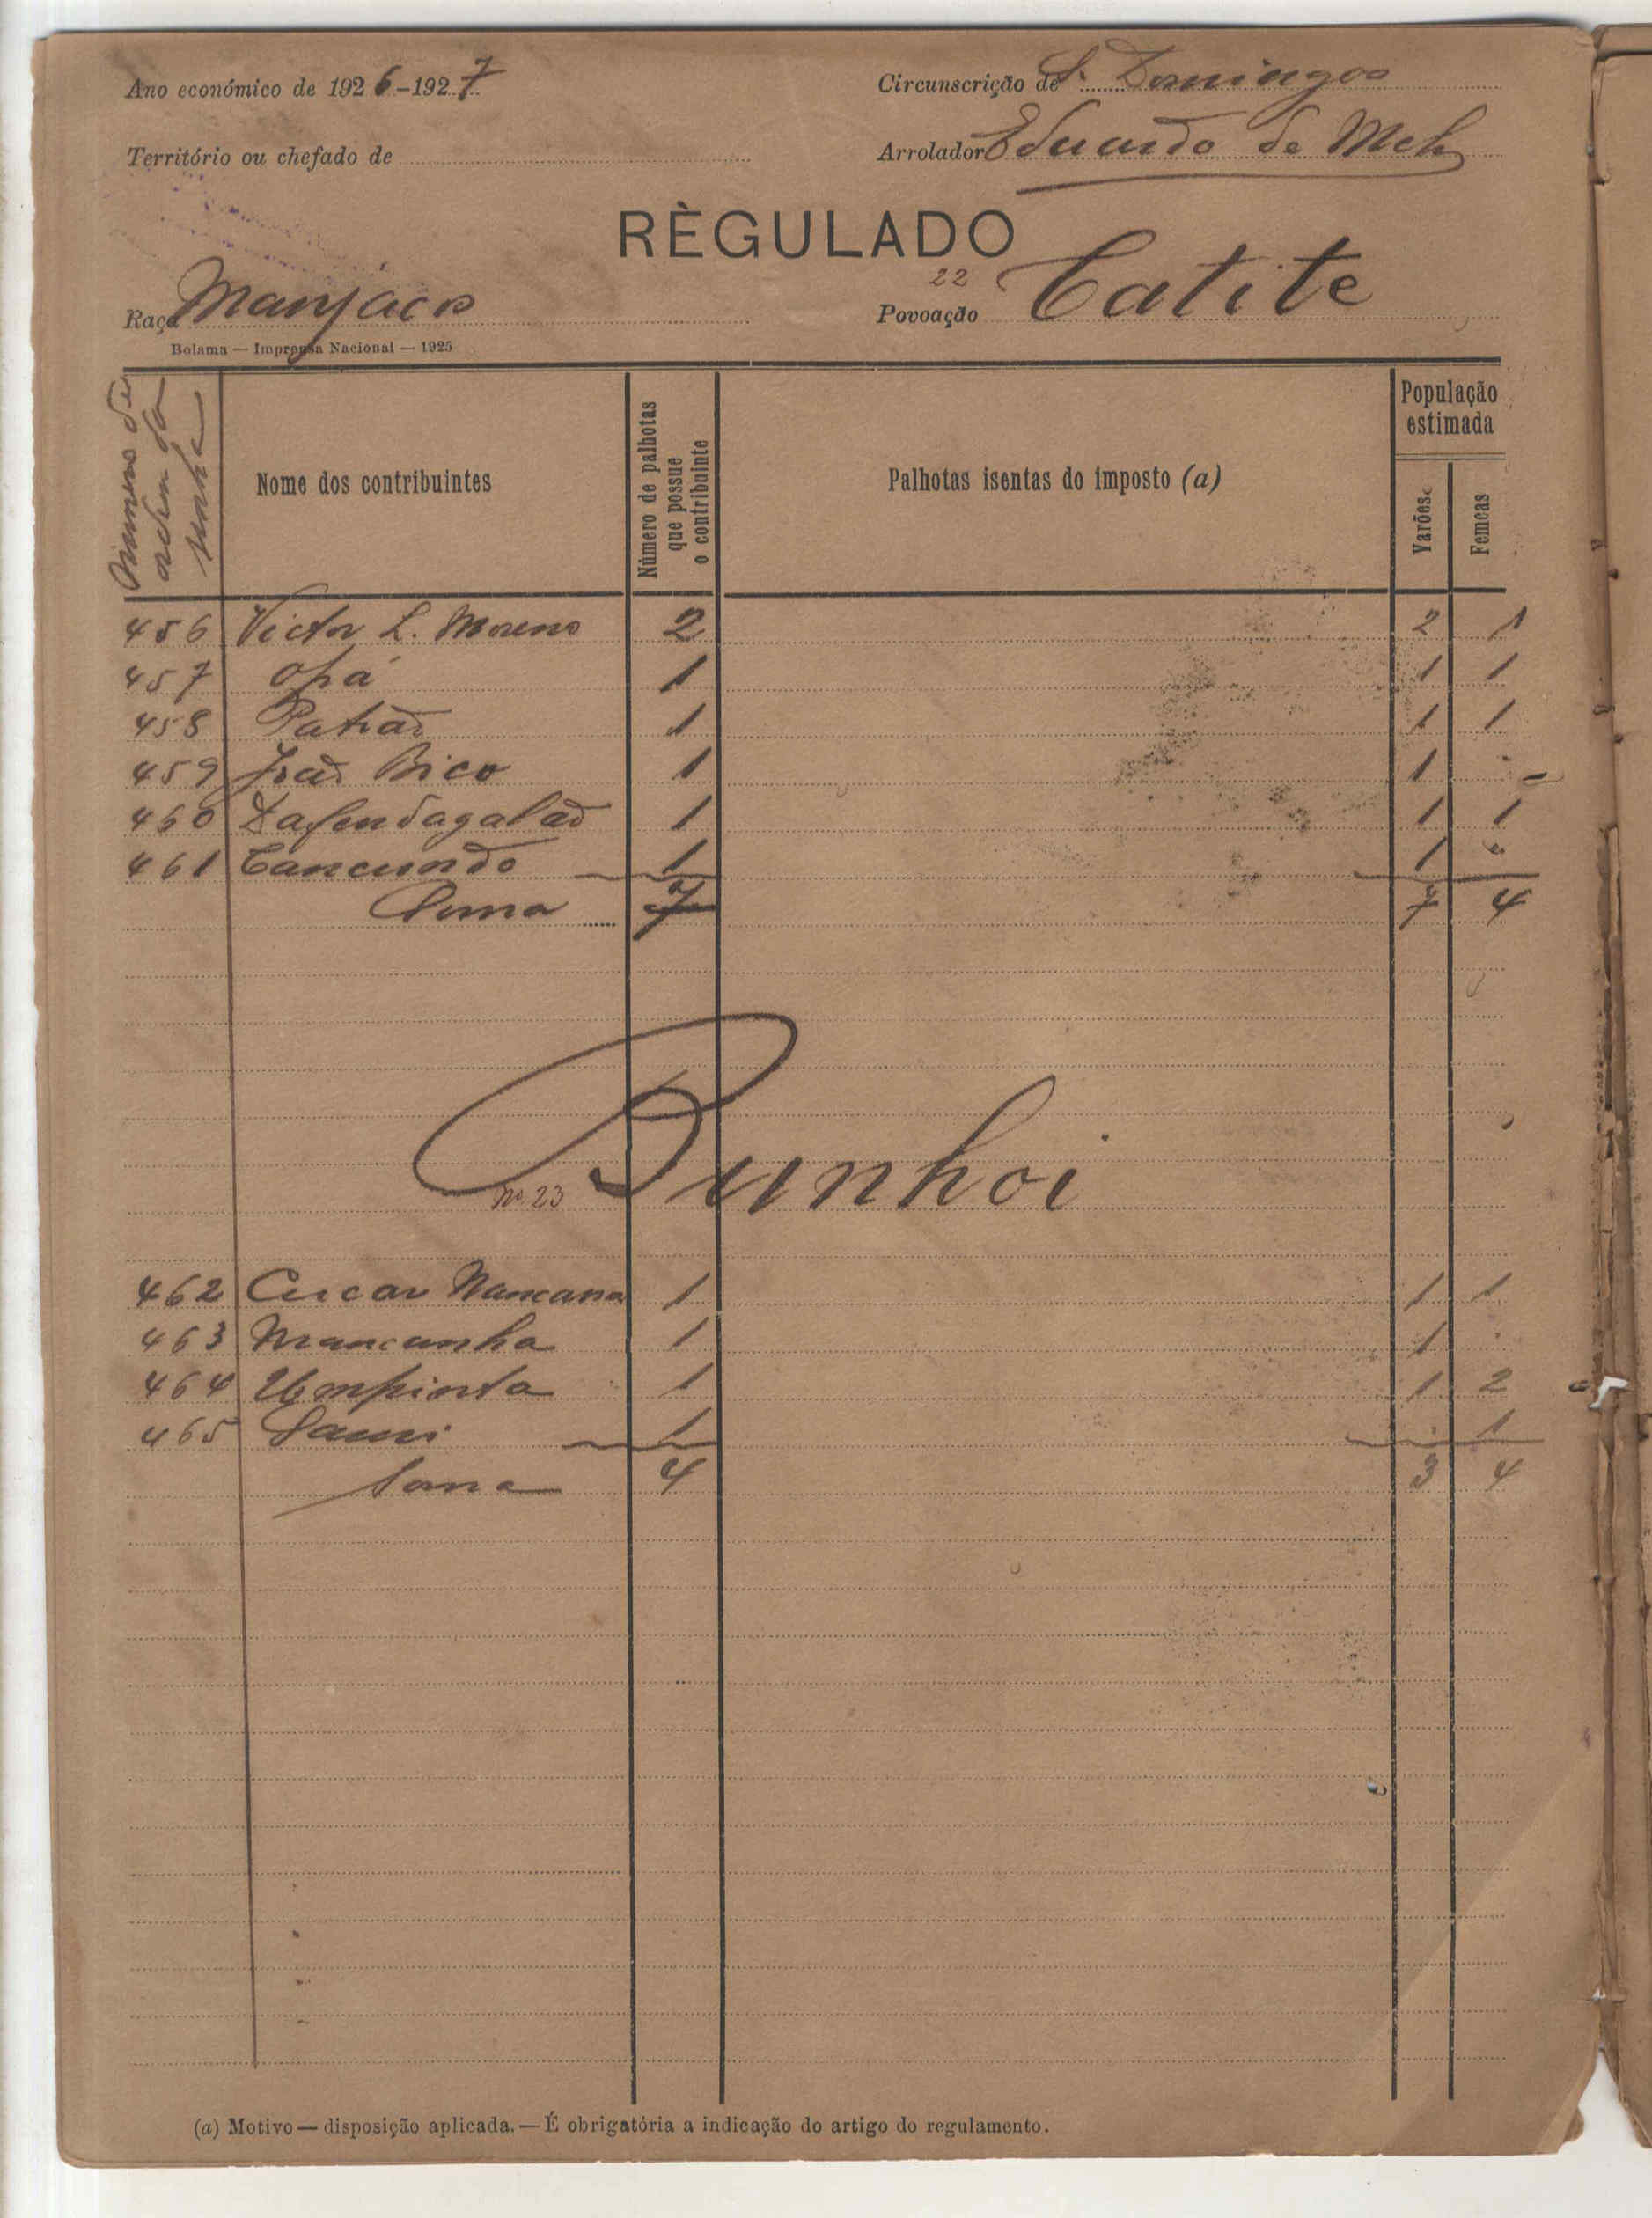 Ano económico de 1926-1927
Circunscrição de S. Domingos
Território ou chefado de
Arrolador Eduardo de Melo
RÈGULADO
22
Raça Manjaco
Povoação Catite
Bolama — Imprensa Nacional — 1925
Número de ordem da senha
Nome dos contribuintes
Número de palhotas que possue o contribuinte
Palhotas isentas do imposto (a)
População estimada
Varões
Femeas
456 Victor L. Moreno 2 2 1
457 Opá 1 1 1
458 Patrão 1 1 1
459 João Bico 1 1 -
460 Dafendagalão 1 1 1
461 Cancundo 1 1 "
Soma 7 7 4
nº 23 Bunhoi
462 Cucar Nancana 1 1 1
463 Mancunha 1 1 .
464 Umpinta 1 1 2
465 Sami 1 . 1
Soma 4 3 4
(a) Motivo — disposição aplicada. — É obrigatória a indicação do artigo do regulamento.